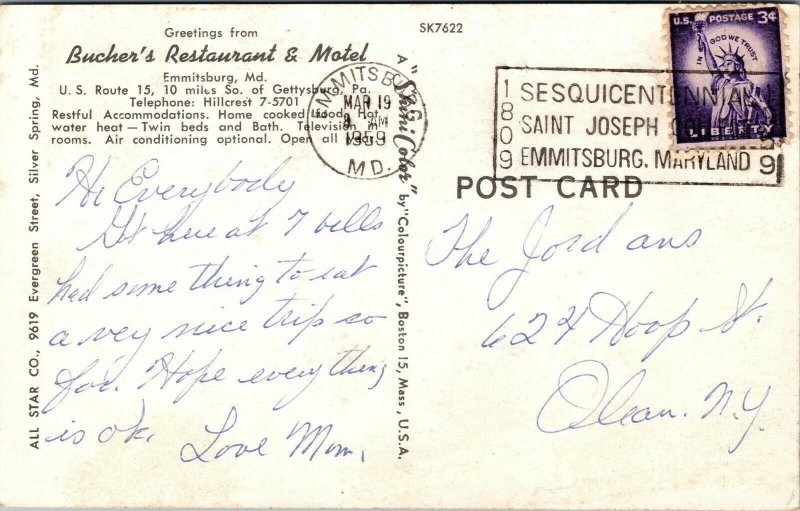 Greetings from
Bucher's Restaurant & Motel
Emmitsburg, Md.
U. S. Route 15, 10 miles So. of Gettysburg, Pa.
Telephone: Hillcrest 7-5701
Restful Accommodations. Home cooked food. Hot
water heat — Twin beds and Bath. Television in
rooms. Air conditioning optional. Open all year.
SK7622
ALL STAR CO., 9619 Evergreen Street, Silver Spring, Md.
A "Plastichrome" by "Colourpicture", Boston 15, Mass., U.S.A.
EMMITSBURG
MAR 19
8 AM
1959
MD.
1809
SESQUICENTENNIAL
SAINT JOSEPH
EMMITSBURG, MARYLAND
59
U.S. POSTAGE 3¢
IN GOD WE TRUST
LIBERTY
POST CARD
Hi Everybody
Got here at 7 bells
had some thing to eat
a very nice trip so
far. Hope everything
is ok. Love Mom,
The Jordans
624 Hoop St.
Olean. N.Y.